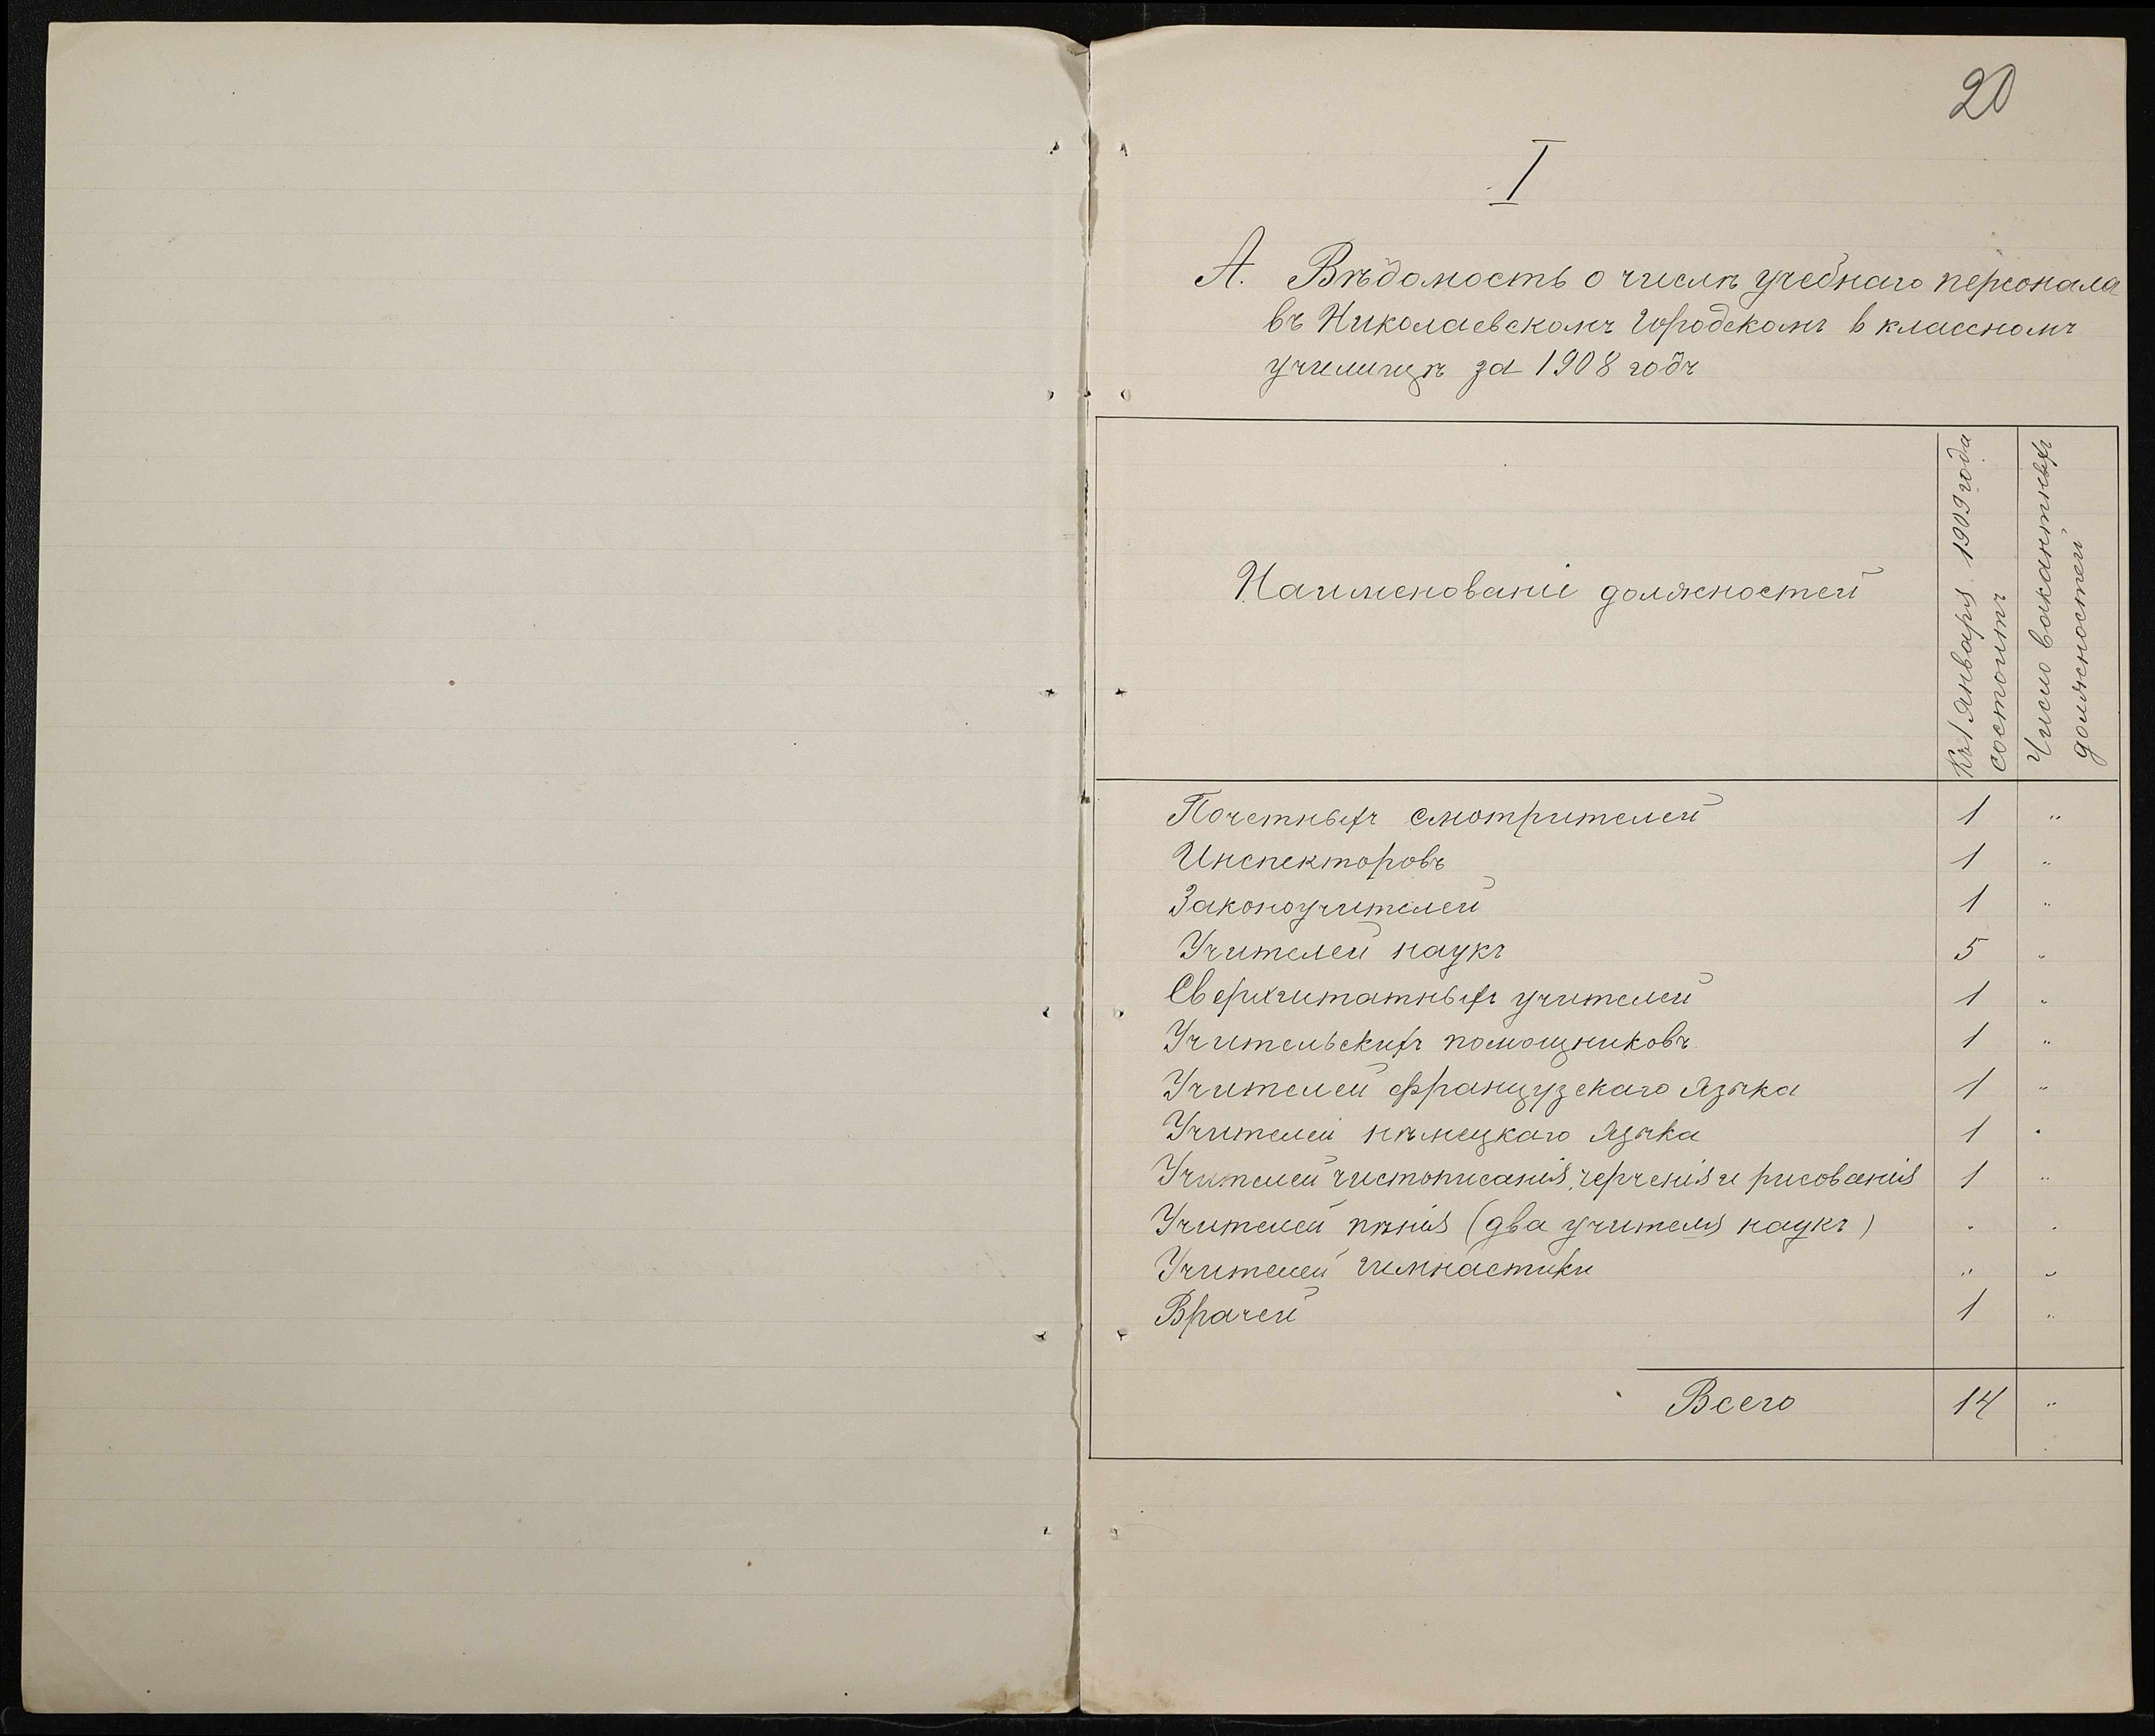 20
I
А. Вѣдомость о числѣ учебнаго персонала
въ Николаевскомъ Городскомъ 6 классномъ
училищѣ за 1908 годъ
Наименованіе должностей
Къ 1 Января 1909 года
состоитъ
Число вакантныхъ
должностей
Почетныхъ смотрителей 1 "
Инспекторовъ 1 "
Законоучителей 1 "
Учителей наукъ 5 "
Сверхштатныхъ учителей 1 "
Учительскихъ помощниковъ 1 "
Учителей французскаго языка 1 "
Учителей нѣмецкаго языка 1 "
Учителей чистописанія, черченія и рисованія 1 "
Учителей пѣнія (два учителя наукъ) " "
Учителей гимнастики " "
Врачей 1 "
Всего 14 "